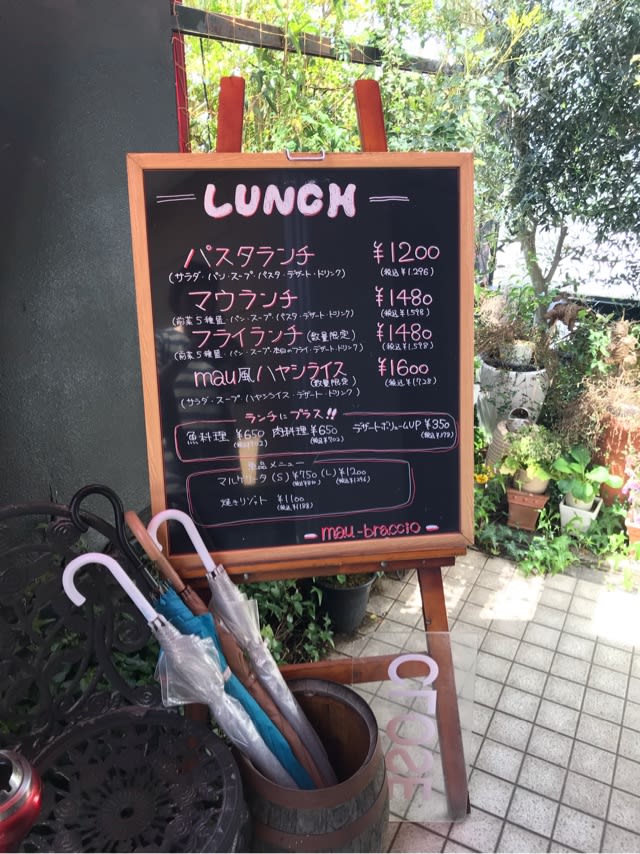 LUNCH
パスタランチ ¥1200
(サラダ・パン・スープ・パスタ・デザート・ドリンク) (税込¥1,296)
マウランチ ¥1480
(前菜5種盛・パン・スープ・パスタ・デザート・ドリンク) (税込¥1,598)
フライランチ (数量限定) ¥1480
(前菜5種盛・パン・スープ・本日のフライ・デザート・ドリンク) (税込¥1,598)
mau風ハヤシライス ¥1600
(数量限定) (税込¥1,728)
(サラダ・スープ・ハヤシライス・デザート・ドリンク)
ランチにプラス!!
魚料理 ¥650 肉料理 ¥650 デザートボリュームUP ¥350
(税込¥702) (税込¥702) (税込¥378)
単品メニュー
マルゲリータ (S) ¥750 (L) ¥1200
(税込¥810) (税込¥1,296)
焼きリゾット ¥1100
(税込¥1,188)
mau-braccio
CLOSE